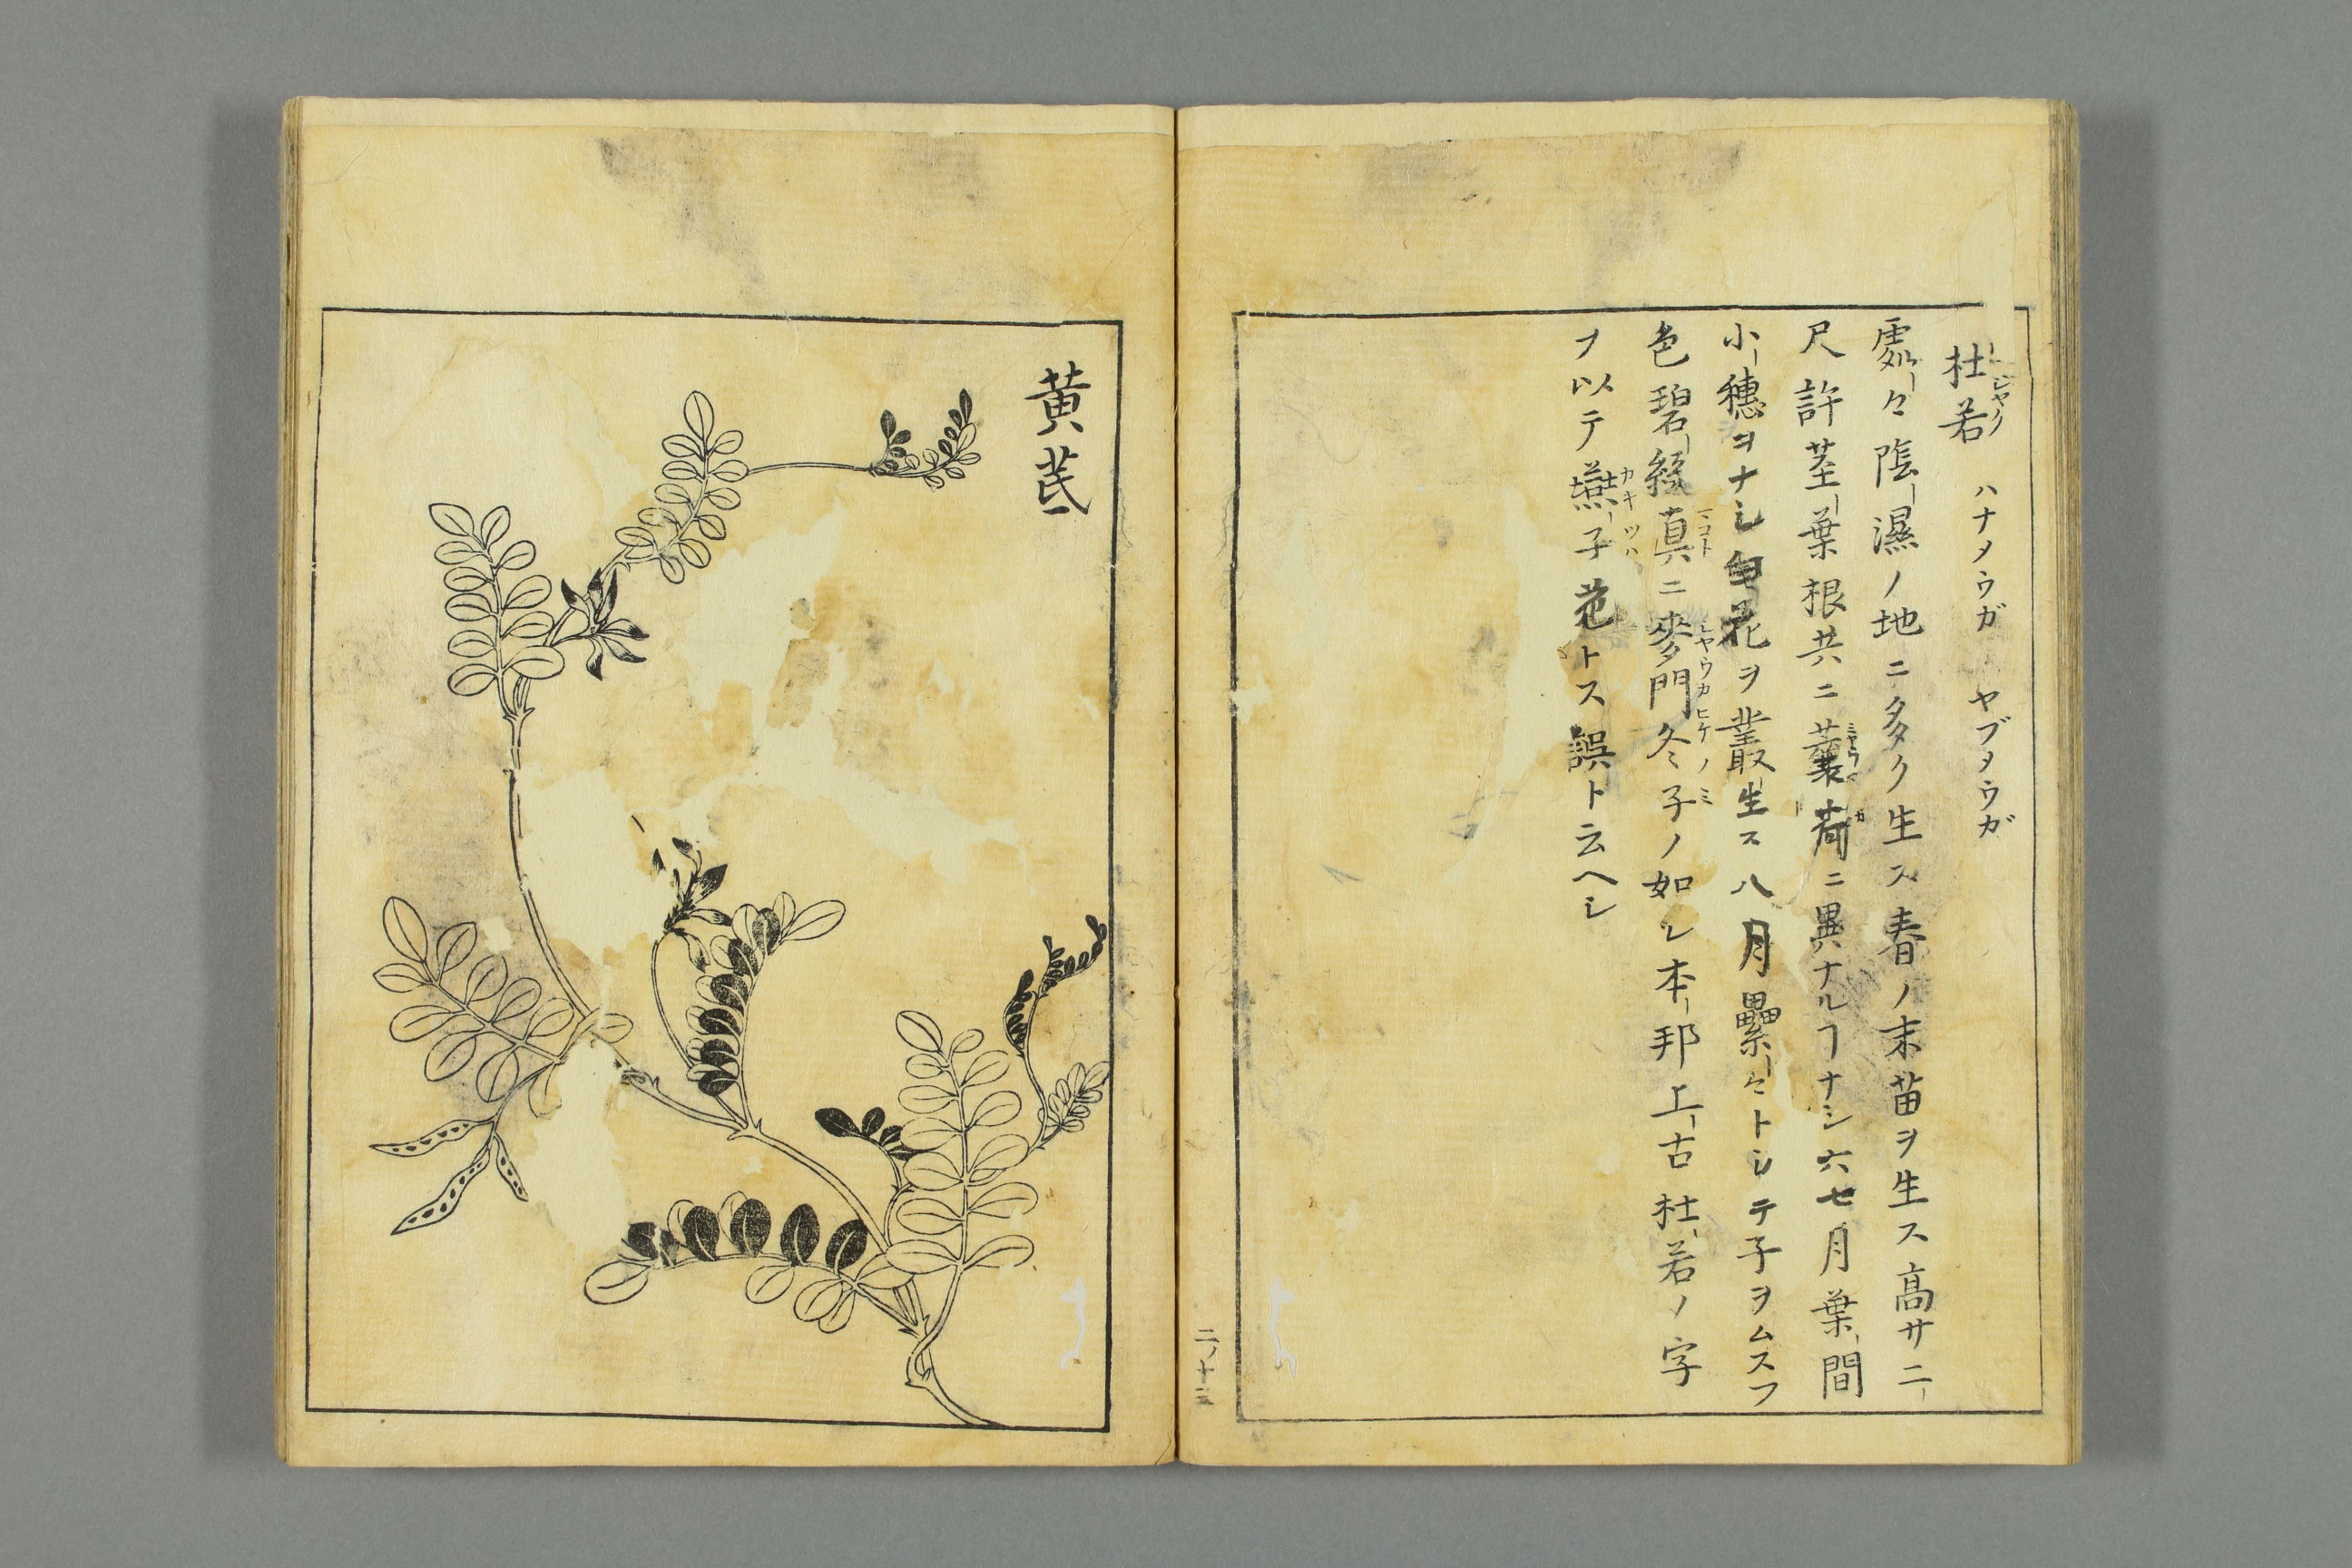 杜若 ハナメウガ ヤブメウガ
處々陰濕ノ地ニ多ク生ス春ノ末苗ヲ生ス高サニ
尺許莖葉根共ニ蘘荷ニ異ナルヿナシ六七月葉間
小穗ヲナシ白花ヲ叢生ス八月纍々トシテ子ヲムスフ
色碧綠真ニ麥門冬子ノ如シ本邦上古杜若ノ字
ヲ以テ燕子花トス誤ト云ヘシ
黄芪